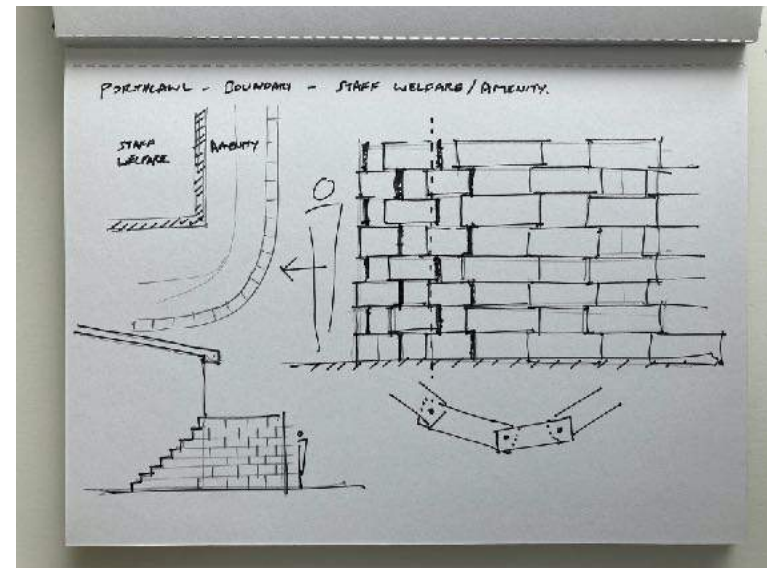 PORTHCAWL - BOUNDARY - STAFF WELFARE/AMENITY.
STAFF
WELFARE
AMENITY